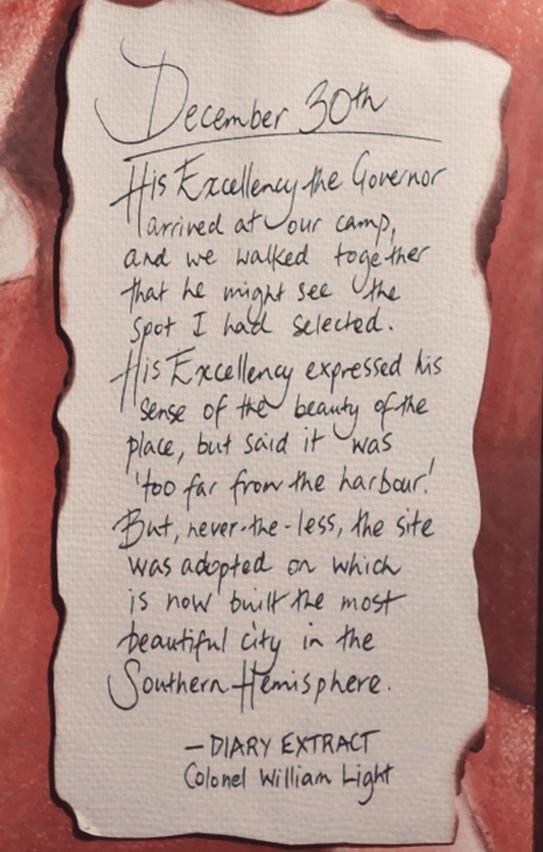 December 30th
His Excellency the Governor
arrived at our camp,
and we walked together
that he might see the
spot I had selected.
His Excellency expressed his
sense of the beauty of the
place, but said it was
'too far from the harbour.'
But, never-the-less, the site
was adopted on which
is now built the most
beautiful city in the
Southern Hemisphere.
—DIARY EXTRACT
Colonel William Light